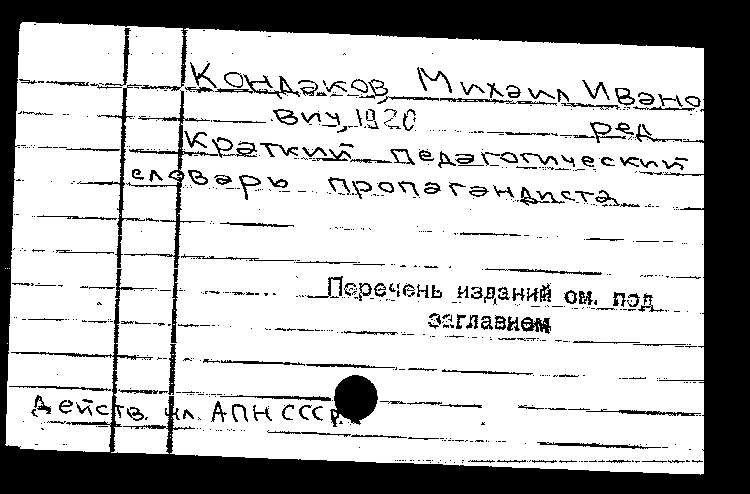 Кондаков, Михаил Ивано
вич, 1920 ред
Краткий педагогический
словарь пропагандиста
Перечень изданий см. под
заглавием
Действ. чл. АПН СССР